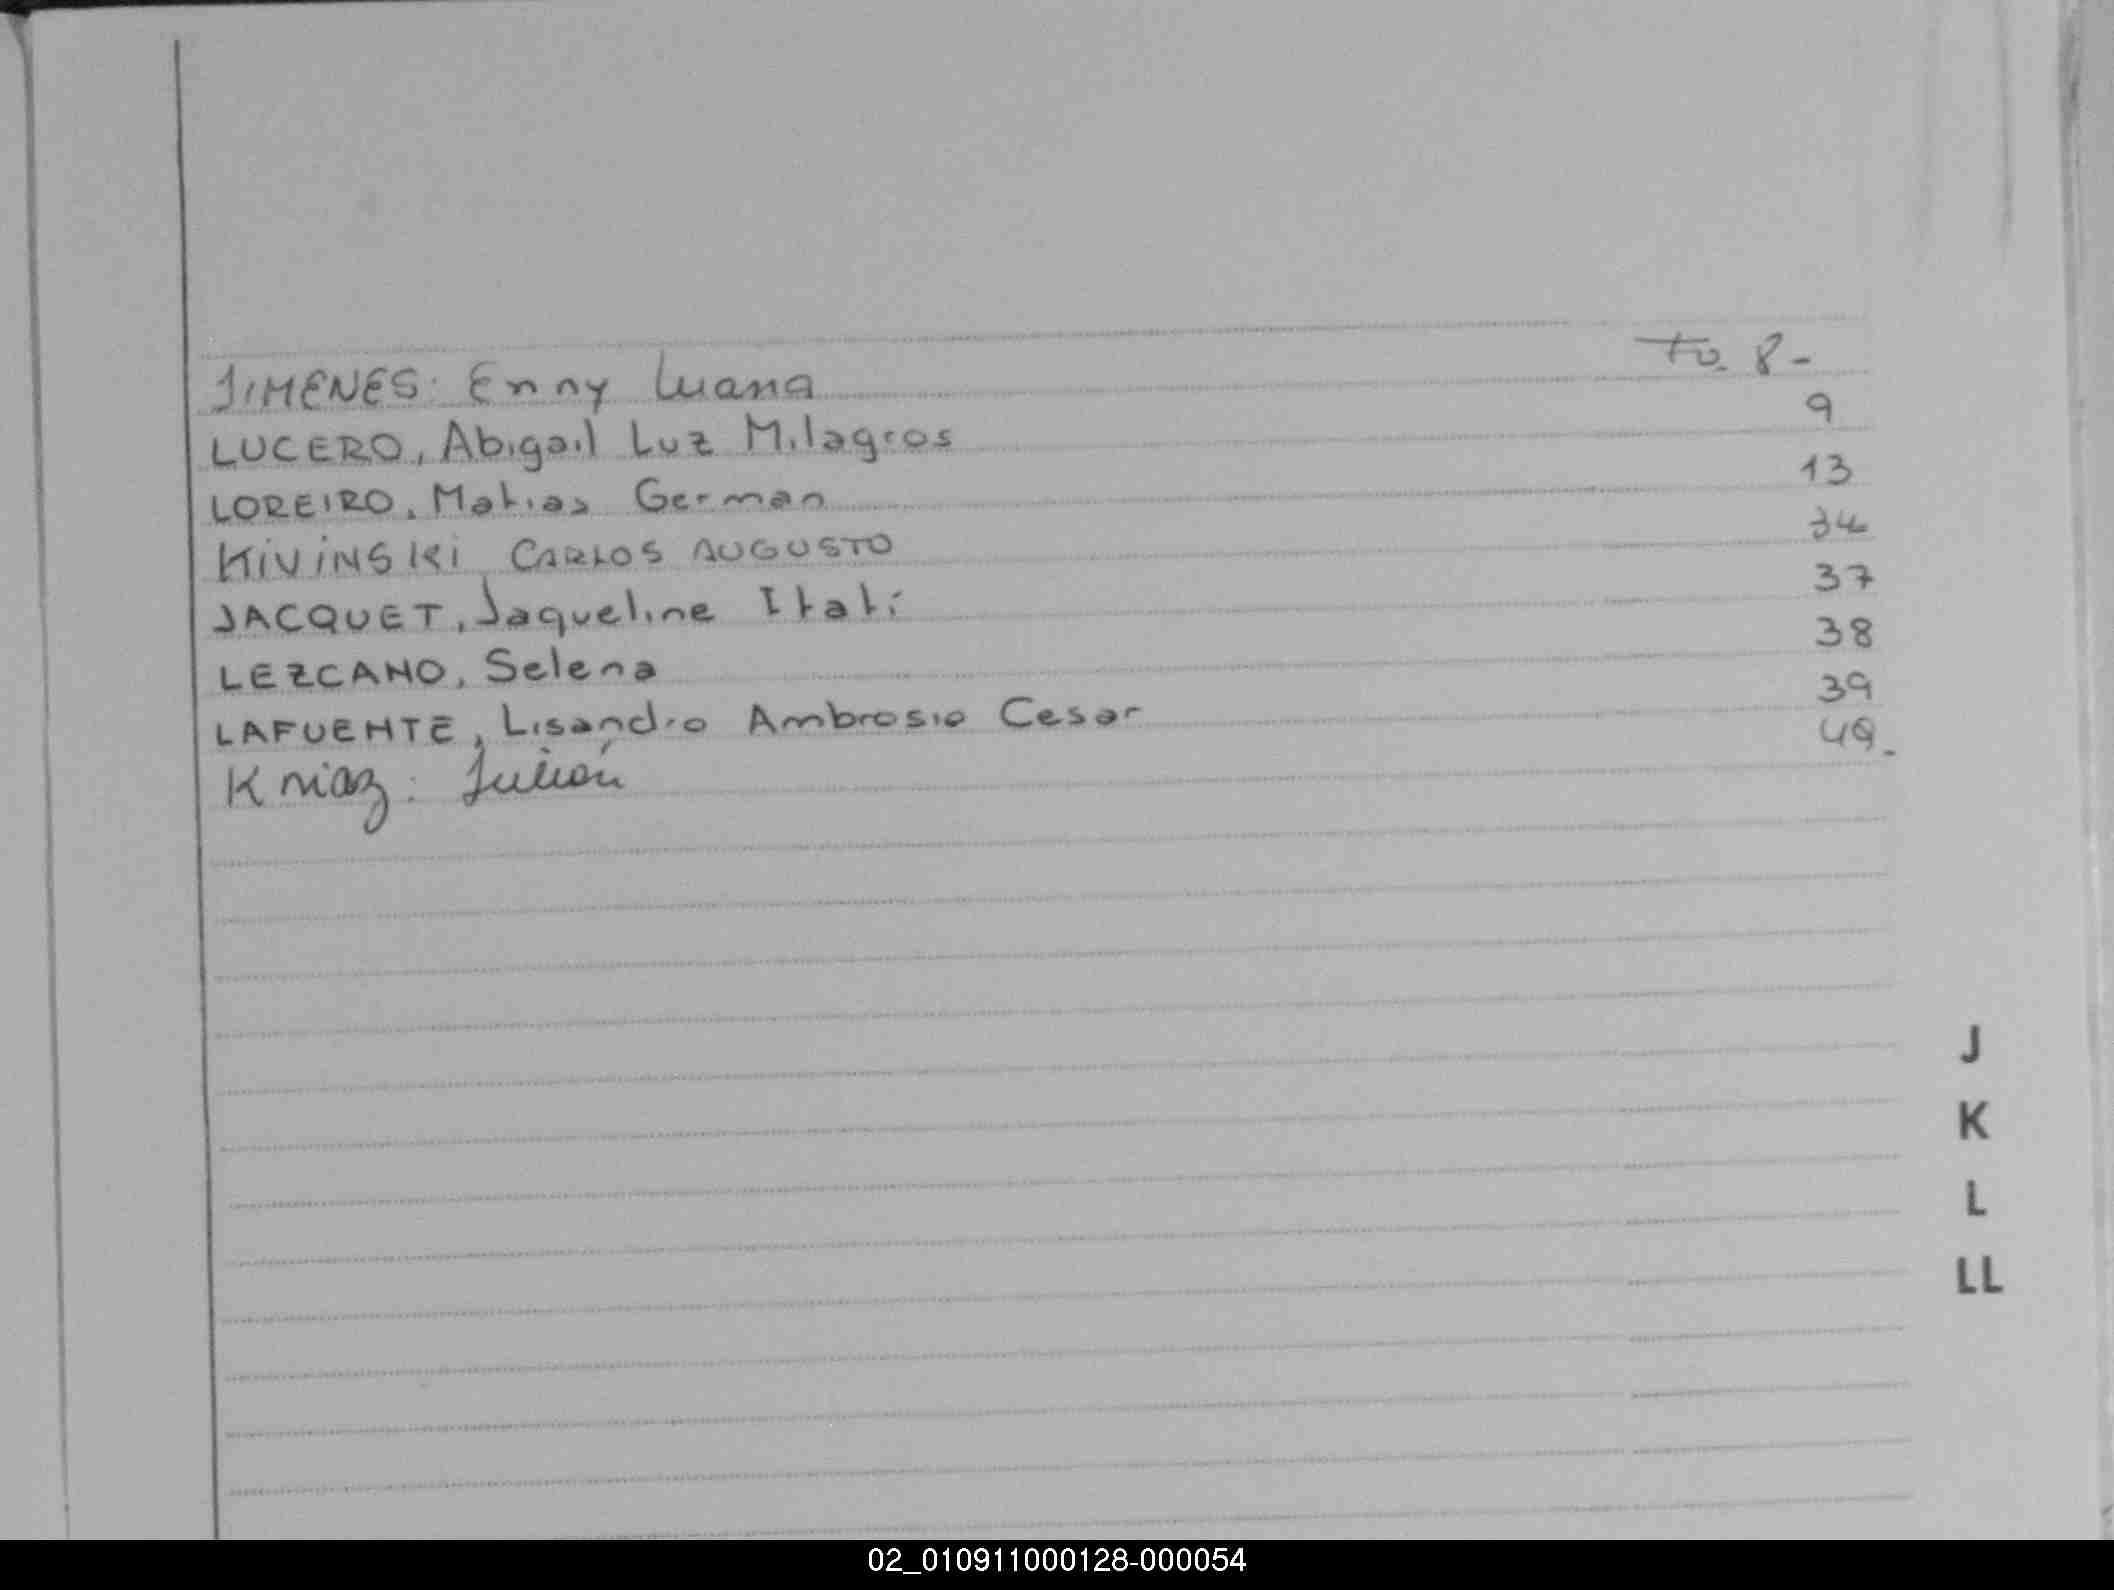 JIMENES: Enny Luana Fo. 8-
LUCERO, Abigail Luz Milagros 9
LOREIRO, Matias German 13
KIVINSKI CARLOS AUGUSTO 34
JACQUET, Jaqueline Itatí 37
LEZCANO, Selena 38
LAFUENTE, Lisandro Ambrosio Cesar 39
Kniaz: Julián 49.
J
K
L
LL
02_010911000128-000054